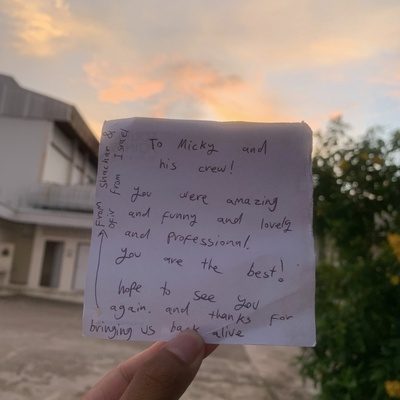 To Micky and
his crew!
You were amazing
and funny and lovely
and professional,
You are the best!
hope to see you
again. and thanks for
bringing us back alive
From Shachar &
Ofir from Israel